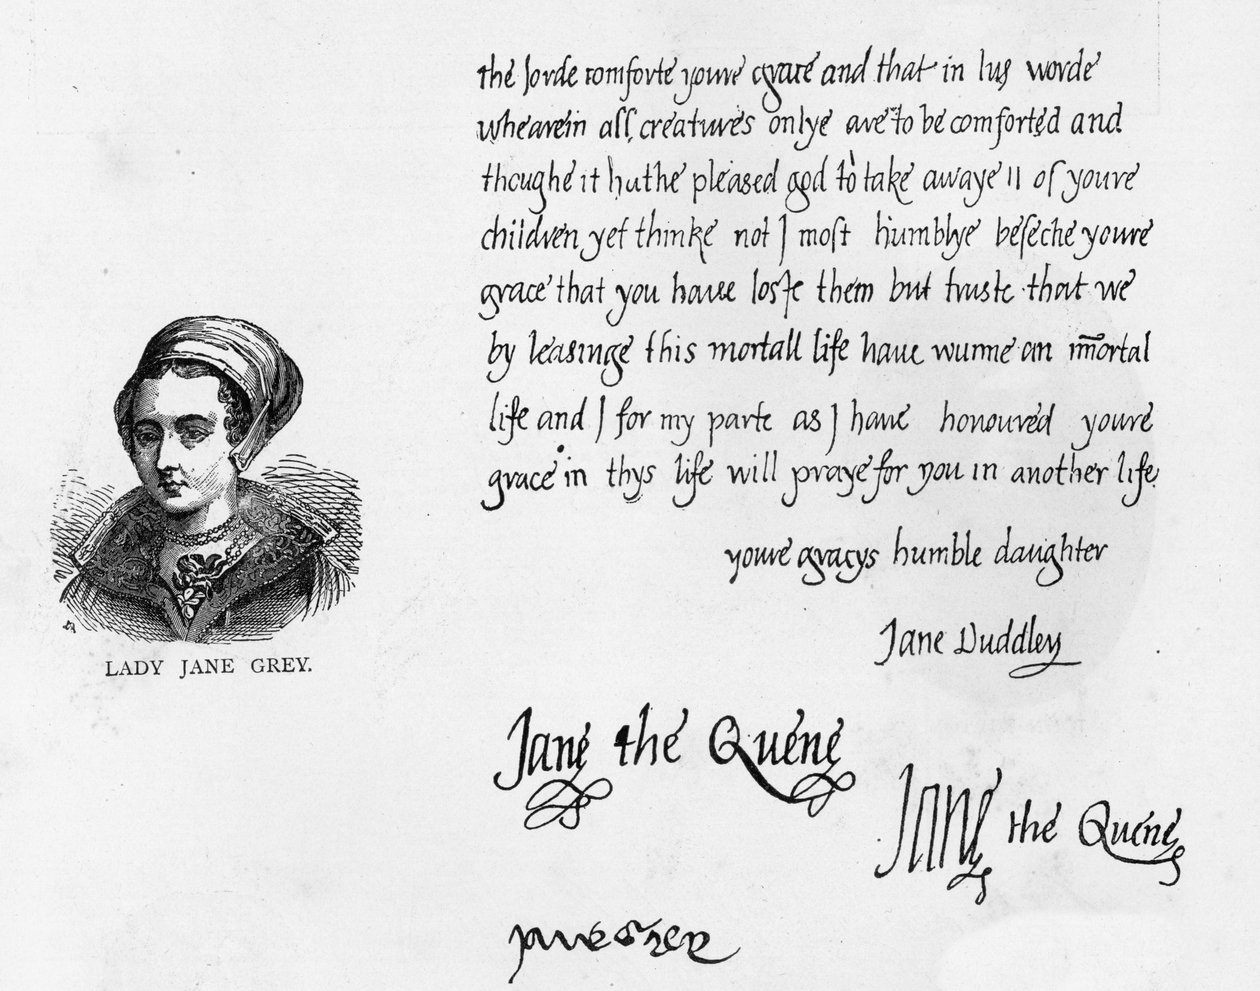 the lorde comforte youre grace and that in his worde
whearein all creatures onlye are to be comforted and
thoughe it hathe pleased god to take awaye 11 of youre
children yet thinke not J most humblye beseche youre
grace that you haue loste them but truste that we
by leasinge this mortall life haue wunne an immortal
life and J for my parte as J haue honoured youre
grace in thys life will praye for you in another life
youre gracys humble daughter
Jane Duddley
LADY JANE GREY.
Jane the Quene
Jane the Quene